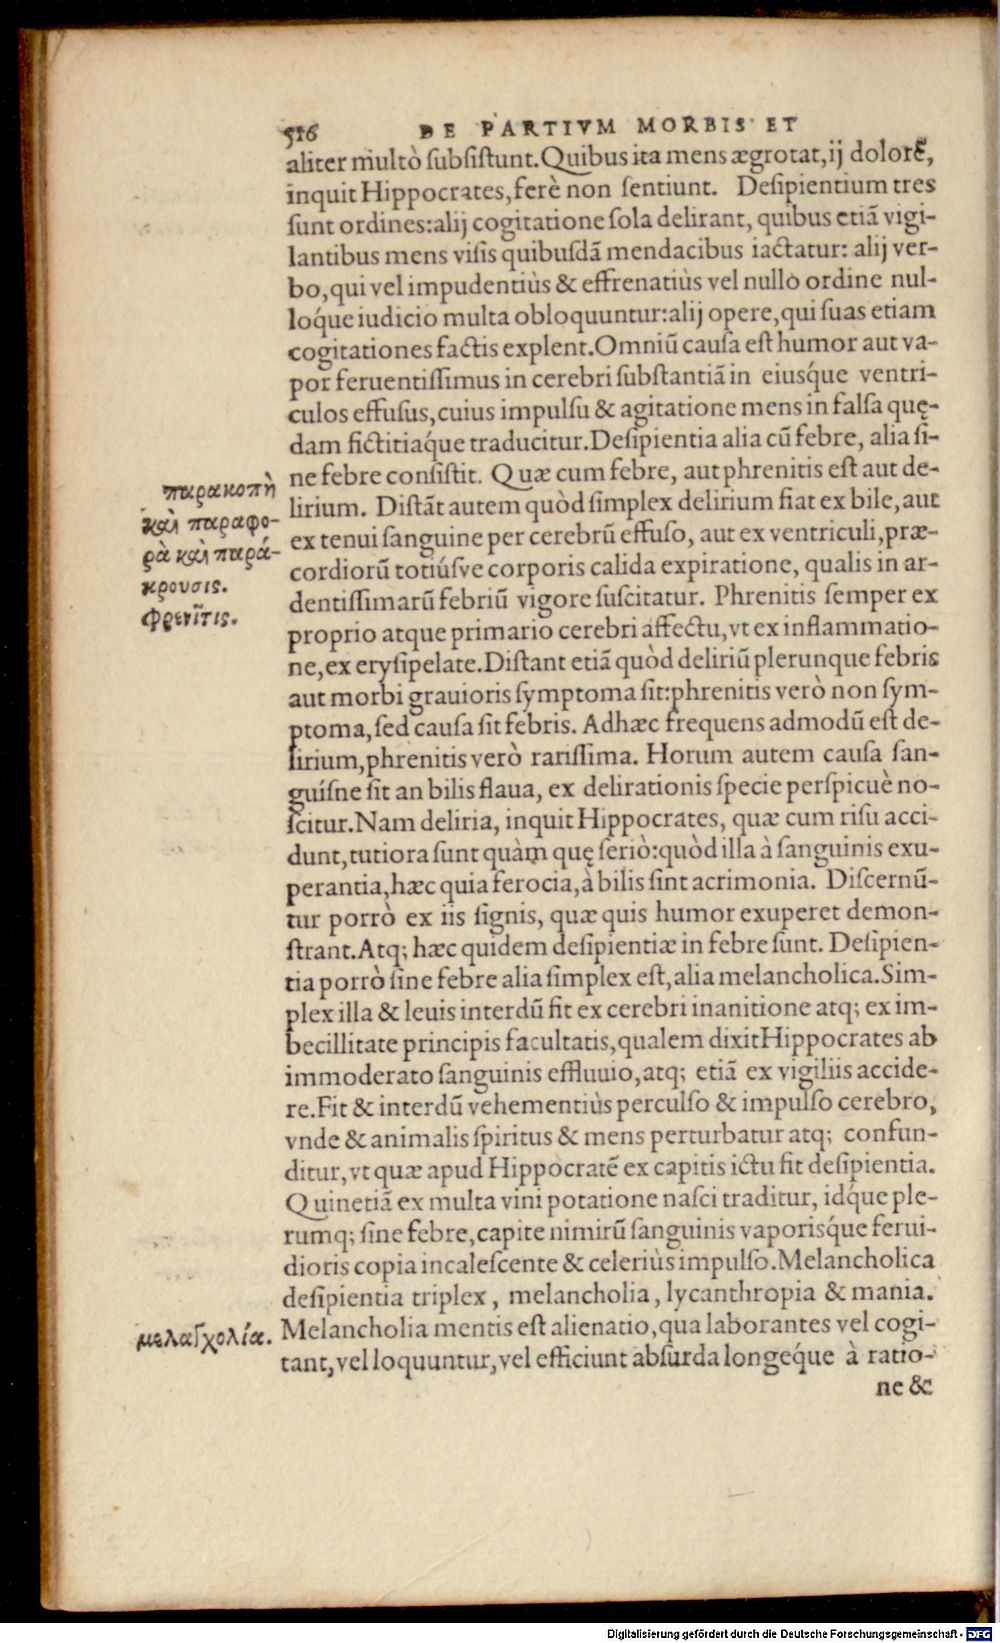 516 DE PARTIVM MORBIS ET
aliter multò ſubſiſtunt. Quibus ita mens ægrotat, ij dolorẽ,
inquit Hippocrates, ferè non ſentiunt. Deſipientium tres
ſunt ordines: alij cogitatione ſola delirant, quibus etiã vigi-
lantibus mens viſis quibuſdã mendacibus iactatur: alij ver-
bo, qui vel impudentiùs & effrenatiùs vel nullo ordine nul-
loq́ue iudicio multa obloquuntur: alij opere, qui ſuas etiam
cogitationes factis explent. Omniũ cauſa eſt humor aut va-
por feruentiſſimus in cerebri ſubſtantiã in eiuſq́ue ventri-
culos effuſus, cuius impulſu & agitatione mens in falſa quę-
dam fictitiaq́ue traducitur. Deſipientia alia cũ febre, alia ſi-
ne febre conſiſtit. Quæ cum febre, aut phrenitis eſt aut de-
παρακοπὴ
lirium. Diſtãt autem quòd ſimplex delirium fiat ex bile, aut
καὶ παραφο-
ex tenui ſanguine per cerebrũ effuſo, aut ex ventriculi, præ-
ρὰ καὶ παρά-
cordiorũ totiúſve corporis calida expiratione, qualis in ar-
κρουσις.
dentiſſimarũ febriũ vigore ſuſcitatur. Phrenitis ſemper ex
φρενῖτις.
proprio atque primario cerebri affectu, vt ex inflammatio-
ne, ex eryſipelate. Diſtant etiã quòd deliriũ plerunque febris
aut morbi grauioris ſymptoma ſit: phrenitis verò non ſym-
ptoma, ſed cauſa ſit febris. Adhæc frequens admodũ eſt de-
lirium, phrenitis verò rariſſima. Horum autem cauſa ſan-
guíſne ſit an bilis flaua, ex delirationis ſpecie perſpicuè no-
ſcitur. Nam deliria, inquit Hippocrates, quæ cum riſu acci-
dunt, tutiora ſunt quàm quę ſeriò: quòd illa à ſanguinis exu-
perantia, hæc quia ferocia, à bilis ſint acrimonia. Diſcernũ-
tur porrò ex iis ſignis, quæ quis humor exuperet demon-
ſtrant. Atq; hæc quidem deſipientiæ in febre ſunt. Deſipien-
tia porrò ſine febre alia ſimplex eſt, alia melancholica. Sim-
plex illa & leuis interdũ fit ex cerebri inanitione atq; ex im-
becillitate principis facultatis, qualem dixit Hippocrates ab
immoderato ſanguinis effluuio, atq; etiã ex vigiliis accide-
re. Fit & interdũ vehementiùs perculſo & impulſo cerebro,
vnde & animalis ſpiritus & mens perturbatur atq; confun-
ditur, vt quæ apud Hippocratẽ ex capitis ictu fit deſipientia.
Quinetiã ex multa vini potatione naſci traditur, idq́ue ple-
rumq; ſine febre, capite nimirũ ſanguinis vaporiſq́ue ferui-
dioris copia incaleſcente & celeriùs impulſo. Melancholica
deſipientia triplex, melancholia, lycanthropia & mania.
μελαγχολία.
Melancholia mentis eſt alienatio, qua laborantes vel cogi-
tant, vel loquuntur, vel efficiunt abſurda longeq́ue à ratio-
ne &
Digitalisierung gefördert durch die Deutsche Forschungsgemeinschaft - DFG